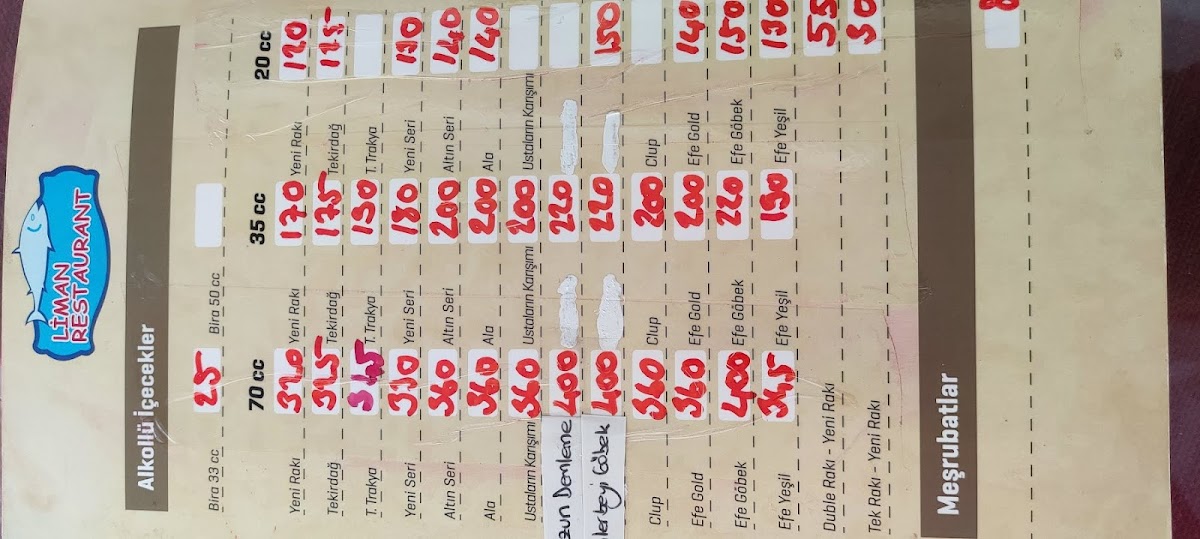 LİMAN
RESTAURANT
Alkollü İçecekler
Bira 33 cc 25 Bira 50 cc
70 cc 35 cc 20 cc
Yeni Rakı 320 Yeni Rakı 170 Yeni Rakı 120
Tekirdağ 325 Tekirdağ 175 Tekirdağ 125-
T. Trakya 345 T. Trakya 190 T. Trakya
Yeni Seri 330 Yeni Seri 180 Yeni Seri 130
Altın Seri 360 Altın Seri 200 Altın Seri 140
Ala 360 Ala 200 Ala 140
Ustaların Karışımı 360 Ustaların Karışımı 200 Ustaların Karışımı
zun Demleme 400 220
lerbeyi Göbek 400 220 150
Clup 360 Clup 200 Clup
Efe Gold 360 Efe Gold 200 Efe Gold 140
Efe Göbek 400 Efe Göbek 220 Efe Göbek 150
Efe Yeşil 345 Efe Yeşil 190 Efe Yeşil 130
Duble Rakı - Yeni Rakı 55
Tek Rakı - Yeni Rakı 30
Meşrubatlar